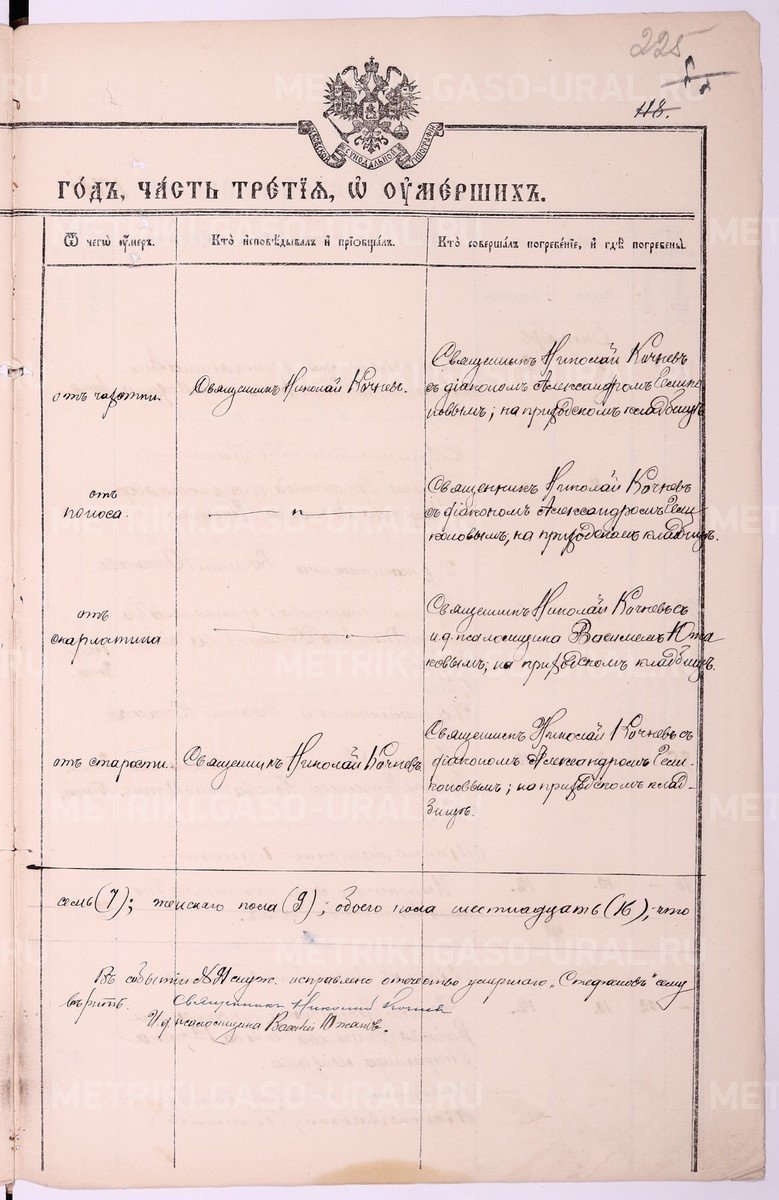 225
118.
МОСКОВСКОЙ СУНОДАЛЬНОЙ ТИПОГРАФІИ
ГО́ДЪ, ЧА́СТЬ ТРЕ́ТІѦ, Ѡ҆ ОУ҆МЕ́РШИХЪ.
Ѿ чегѡ̀ ᲂу҆́меръ.
Кто̀ и҆сповѣ́дывалъ и҆ прїѡбща́лъ.
Кто̀ соверша́лъ погребе́нїе, и҆ гдѣ̀ погребены̀.
отъ чахотки
Священникъ Николай Кочневъ.
Священникъ Николай Кочневъ
съ діакономъ Александромъ
новымъ; на приходскомъ кладбищѣ
отъ
поноса.
—— „ ——
Священникъ Николай Кочневъ
съ діакономъ Александромъ
коновымъ, на приходскомъ кладбищѣ.
отъ
скарлатина
—— „ ——
Священникъ Николай Кочневъ съ
и.д. псаломщика Василіемъ Южа
ковымъ; на приходскомъ кладбищѣ.
отъ старости.
Священникъ Николай Кочневъ
Священникъ Николай Кочневъ съ
діакономъ Александромъ
коновымъ; на приходскомъ клад-
бищѣ.
семь (7); женскаго пола (9); обоего пола шестнадцать (16); что
Въ событіи № 91 исправлено отчество умершаго „Стефановъ" сему
вѣрить. Священникъ Николай Кочневъ
И.д. псаломщика Василій Южаковъ.
METRIKI.GASO-URAL.RU